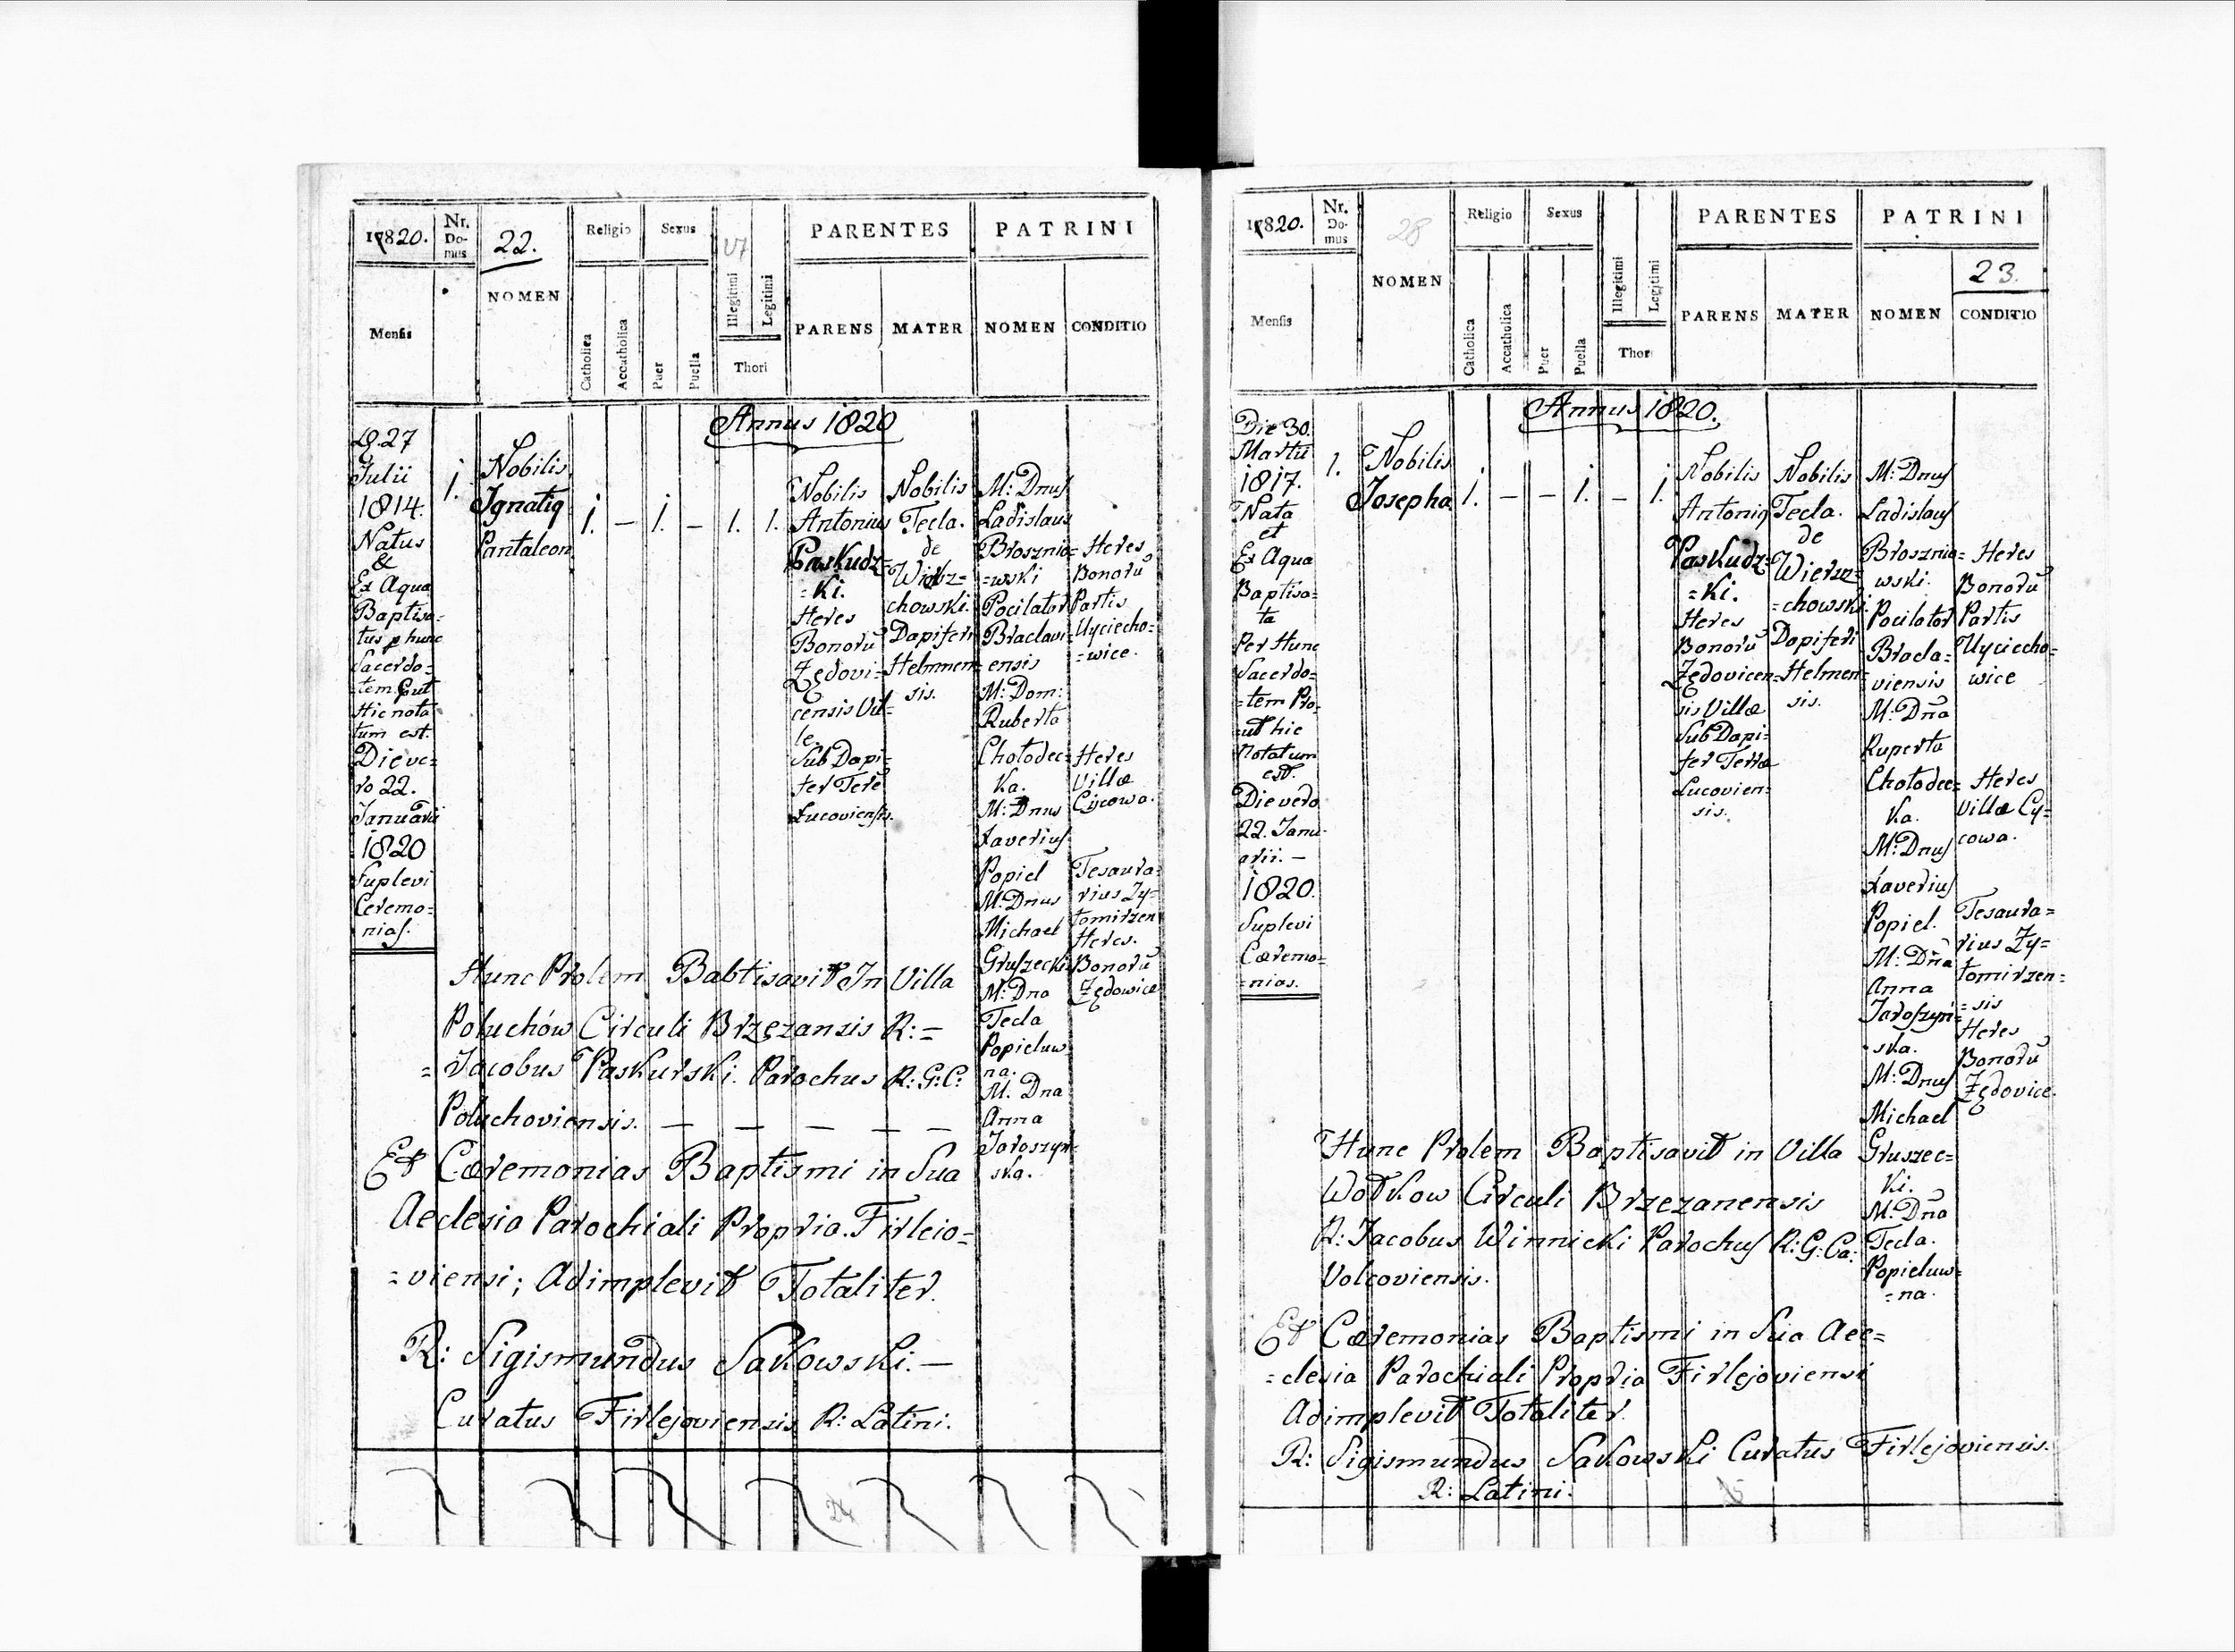 1820.
Nr. Do- mus
22.
NOMEN
Religio
Sexus
Illegitimi
Legitimi
Thori
PARENTES
PATRINI
Mensis
Catholica
Accatholica
Puer
Puella
PARENS
MATER
NOMEN
CONDITIO
Annus 1820
D. 27
Julii
1814.
Natus
&
Ex Aqua
Baptisa=
tus p hunc
Sacerdo=
tem Put
Hic nota
tum est.
Die ve=
ro 22.
Januarii
1820
Suplevi
Ceremo=
nias.
1.
Nobilis
Ignatiq
Pantaleon
1. — 1. — 1. 1.
Nobilis
Antonius
Paskudz=
=ki.
Heres
Bonorũ
Zędovi=
censis Vil=
le.
Sub Dapi=
fer Tere
Lucoviensis.
Nobilis
Tecla.
de
Wierz=
chowski.
Dapiferi
Helmmen=
sis.
M: Dnus
Ladislaus
Brosznio=
=wski
Pocilator
Braclavi=
ensis
M: Dom:
Ruberta
Chołodec=
ka.
M: Dnus
Xaverius
Popiel
M: Dnus
Michael
Gruszecki
M: Dna
Tecla
Popieluw=
na.
M. Dna
Anna
Jaroszyń=
ska.
Heres
Bonorũ
Partis
Uyciecho=
=wice.
Heres
Villæ
Cycowa.
Tesaura=
rius Zy=
tomirzen
Heres.
Bonorũ
Zędowice
Hunc Prolem Babtisavit In Villa
Poluchów Circuli Brzęzansis R:=
=Jacobus Paskurski. Parochus R: G: C:
Poluchoviensis. — — — — —
Et Cæremonias Baptismi in Sua
Aeclesia Parochiali Propria. Firleio=
=viensi; Adimplevit Totaliter.
R: Sigismundus Sakowski. —
Curatus Firlejoviensis R: Latini.
1820.
Nr. Do- mus
28
NOMEN
Religio
Sexus
Illegitimi
Legitimi
Thori
PARENTES
PATRINI
23.
Mensis
Catholica
Accatholica
Puer
Puella
PARENS
MATER
NOMEN
CONDITIO
Annus 1820.
Die 30.
Martii
1817.
Nata
et
Ex Aqua
Baptisa=
ta
Per Hunc
Sacerdo=
=tem Pro=
=ut hic
Notatum
est.
Die vero
22. Janu=
arii. —
1820.
Suplevi
Cæremo=
=nias.
1.
Nobilis
Josepha
1. — — 1. — 1.
Nobilis
Antoniq
Paskudz=
=ki.
Heres
Bonorũ
Zędovicen=
sis Villæ
Sub Dapi=
fer Terræ
Lucovien=
sis.
Nobilis
Tecla.
de
Wierz=
=chowski.
Dapiferi
Helmen=
sis.
M: Dnus
Ladislaus
Brosznio=
wski.
Pocilator
Bracla=
viensis
M: Dña
Ruperta
Chołodec=
ka.
M: Dnus
Xaverius
Popiel.
M: Dña
Anna
Jaroszyń=
ska.
M: Dnus
Michael
Gruszec=
ki.
M: Dña
Tecla.
Popieluw=
=na.
Heres
Bonorũ
Partis
Uyciecho=
wice
Heres
Villæ Cy=
cowa.
Tesaura=
rius Zy=
tomirzen=
=sis
Heres
Bonorũ
Zędovice.
Hunc Prolem Baptisavit in Villa
Wołkow Circuli Brzezanensis
R: Jacobus Winnicki Parochus R: G: Ca:
Volcoviensis.
Et Cæremonias Baptismi in Sua Aec=
=clesia Parochiali Propria Firlejoviensi
Adimplevit Totaliter.
R: Sigismundus Sakowski Curatus Firlejoviensis.
R: Latini.